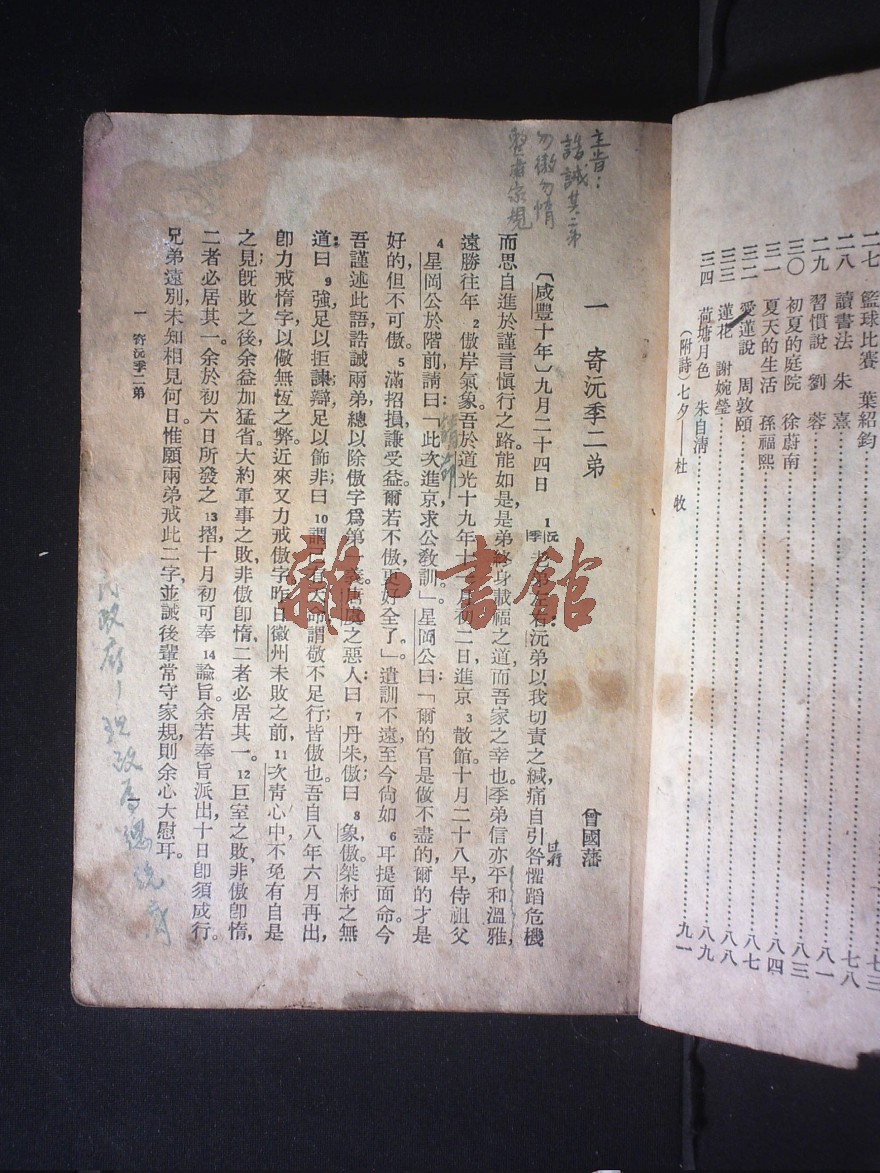 二七 籃球比賽 葉紹鈞……七三
二八 讀書法 朱熹……七八
二九 習慣說 劉蓉……八一
三〇 初夏的庭院 徐蔚南……八三
三一 夏天的生活 孫福熙……八四
三二 愛蓮說 周敦頤……八七
三三 蓮花 謝婉瑩……八八
三四 荷塘月色 朱自清……八九
(附詩)七夕——杜牧……九一
主旨:
誥誡其二弟
勿傲勿惰
整肅家規
一 寄沅季二弟 曾國藩
〔咸豐十年〕九月二十四日 1沅季老弟左右:沅弟以我切責之緘,痛自引咎,懼蹈危機
而思自進於謹言愼行之路,能如是,是弟終身載福之道,而吾家之幸也。季弟信亦平和溫雅,
遠勝往年2傲岸氣象。吾於道光十九年十一月初二日進京3散館,十月二十八早,侍祖父
4星岡公於階前,請曰:「此次進京,求公敎訓。」星岡公曰:「爾的官是做不盡的,爾的才是
好的,但不可傲。5滿招損,謙受益,爾若不傲,更好全了。」遺訓不遠,至今尙如6耳提面命。今
吾謹述此語,誥誡兩弟,總以除傲字爲第一義。唐虞之惡人:曰7丹朱傲;曰8象傲。桀紂之無
道:曰9強足以拒諫,辯足以飾非;曰10謂已有天命,謂敬不足行,皆傲也。吾自八年六月再出,
卽力戒惰字,以儆無恆之弊,近來又力戒傲字。昨日徽州未敗之前,11次靑心中不免有自是
之見;旣敗之後,余益加猛省。大約軍事之敗,非傲卽惰,二者必居其一。12巨室之敗,非傲卽惰,
二者必居其一。余於初六日所發之13摺,十月初可奉14諭旨。余若奉旨派出,十日卽須成行。
兄弟遠別,未知相見何日。惟願兩弟戒此二字,並誡後輩常守家規,則余心大慰耳。
一 寄沅季二弟
民政府——現改爲總統府
雜·書館